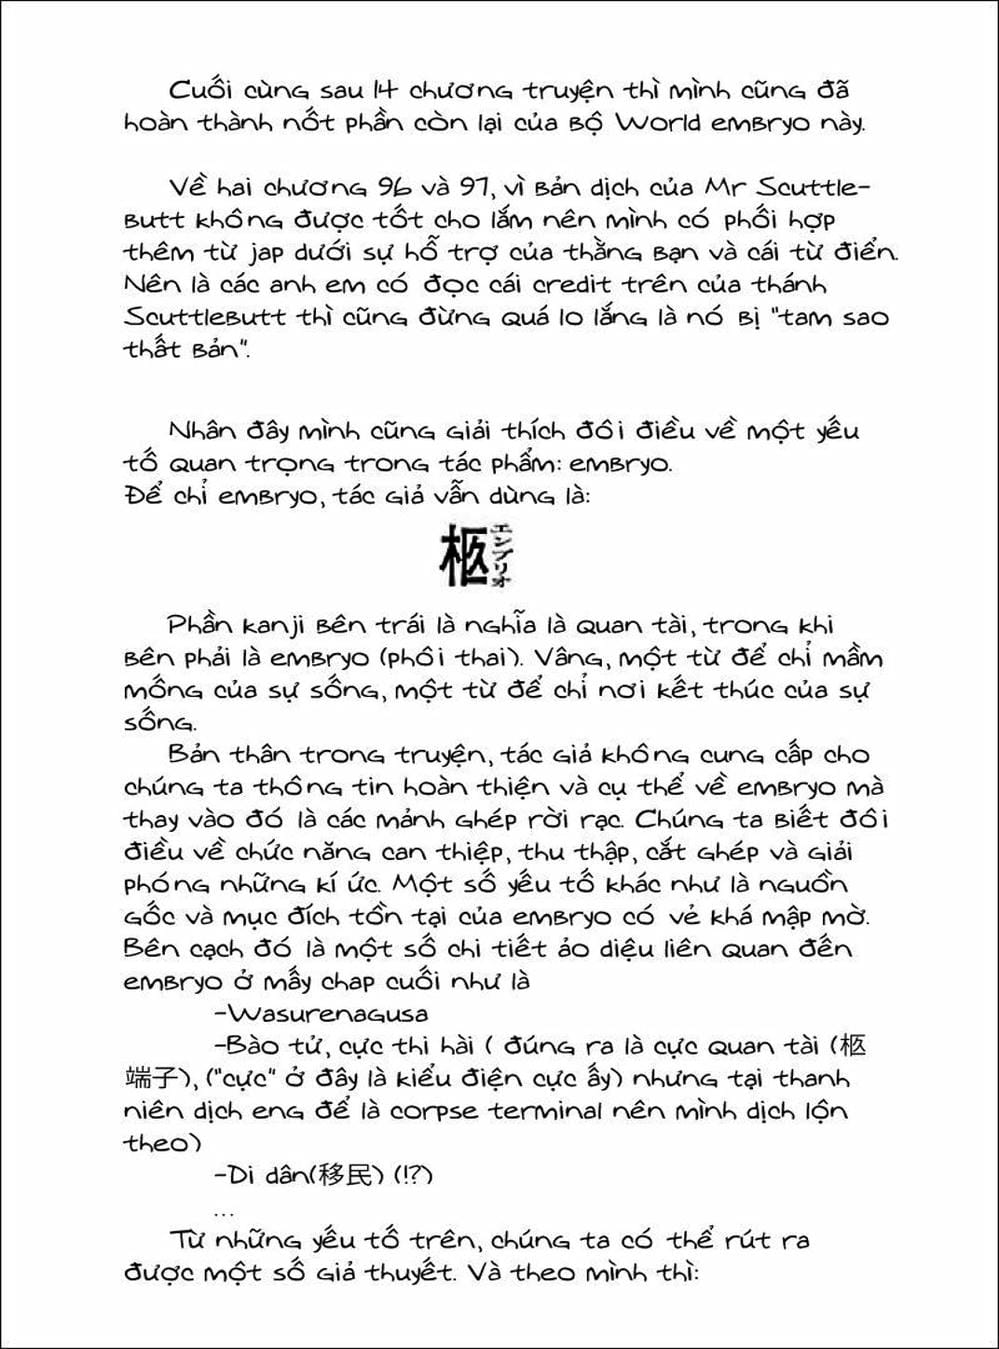 Cuối cùng sau 14 chương truyện thì mình cũng đã
hoàn thành nốt phần còn lại của bộ World embryo này.
Về hai chương 96 và 97, vì bản dịch của Mr Scuttle-
butt không được tốt cho lắm nên mình có phối hợp
thêm từ jap dưới sự hỗ trợ của thằng bạn và cái từ điển.
Nên là các anh em có đọc cái credit trên của thánh
Scuttlebutt thì cũng đừng quá lo lắng là nó bị "tam sao
thất bản".
Nhân đây mình cũng giải thích đôi điều về một yếu
tố quan trọng trong tác phẩm: embryo.
Để chỉ embryo, tác giả vẫn dùng là:
柩エンブリオ
Phần kanji bên trái là nghĩa là quan tài, trong khi
bên phải là embryo (phôi thai). Vâng, một từ để chỉ mầm
mống của sự sống, một từ để chỉ nơi kết thúc của sự
sống.
Bản thân trong truyện, tác giả không cung cấp cho
chúng ta thông tin hoàn thiện và cụ thể về embryo mà
thay vào đó là các mảnh ghép rời rạc. Chúng ta biết đôi
điều về chức năng can thiệp, thu thập, cắt ghép và giải
phóng những kí ức. Một số yếu tố khác như là nguồn
gốc và mục đích tồn tại của embryo có vẻ khá mập mờ.
Bên cạch đó là một số chi tiết ảo diệu liên quan đến
embryo ở mấy chap cuối như là
-Wasurenagusa
-Bào tử, cực thi hài ( đúng ra là cực quan tài (柩
端子), ("cực" ở đây là kiểu điện cực ấy) nhưng tại thanh
niên dịch eng để là corpse terminal nên mình dịch lộn
theo)
-Di dân(移民) (!?)
...
Từ những yếu tố trên, chúng ta có thể rút ra
được một số giả thuyết. Và theo mình thì: